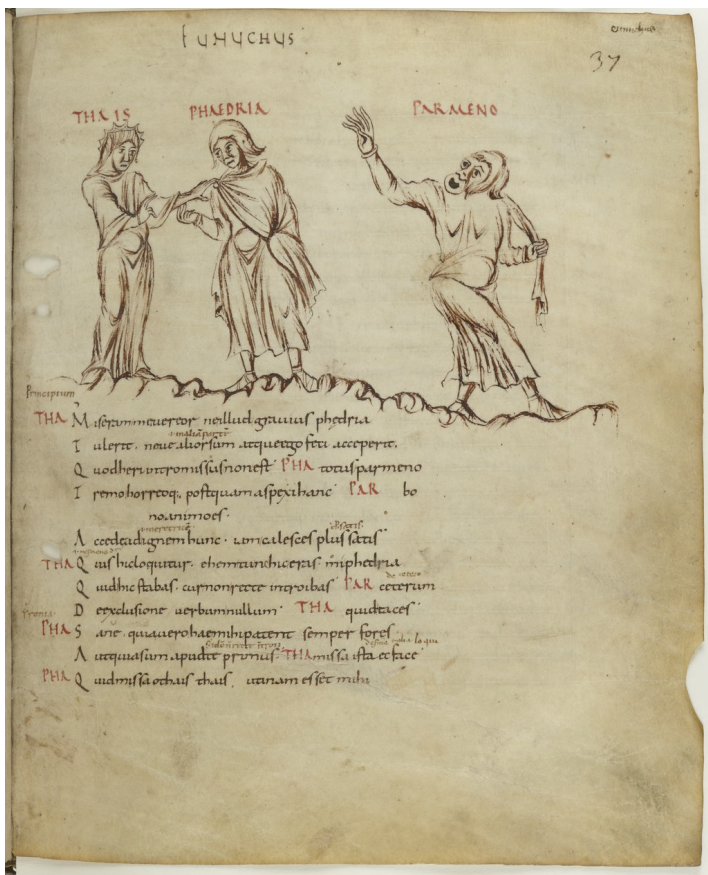 EUNUCHUS
37
THAIS PHAEDRIA PARMENO
Principium
THA Miseram me vereor ne illud gravius phedria
Tulerit. neve aliorsum atque ego feci acceperit.
Quod heri intromissus non est PHA totus parmeno
Tremo horreoq; postquam aspexi hanc PAR bo
no animo es.
Accede ad ignem hunc. iam calesces plus satis
THA Quis hic loquitur. ehem tun hic eras mi phedria
Quid hic stabas. cur non recte introibas PAR ceterum
De exclusione verbum nullum THA quid taces
PHA Sane. quia vero haem ihi patent semper fores
Aut quia sum apud te primus. THA missa ista ec face
PHA Quid missa o thais thais. utinam esset mihi